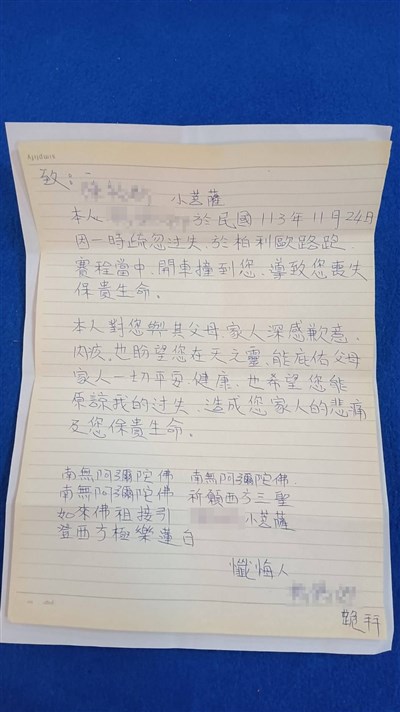 致：
小菩薩
本人 於民國113年11月24日
因一時疏忽过失，於柏利歐路跑
賽程當中，開車撞到您，導致您喪失
保貴生命。
本人對您與其父母、家人深感歉意、
內疚，也盼望您在天之靈，能庇佑父母
家人一切平安、健康，也希望您能
原諒我的过失，造成您家人的悲痛
及您保貴生命。
南無阿彌陀佛 南無阿彌陀佛
南無阿彌陀佛 祈願西方三聖
如來佛祖接引 小菩薩
登西方極樂蓮台
懺悔人
跪拜